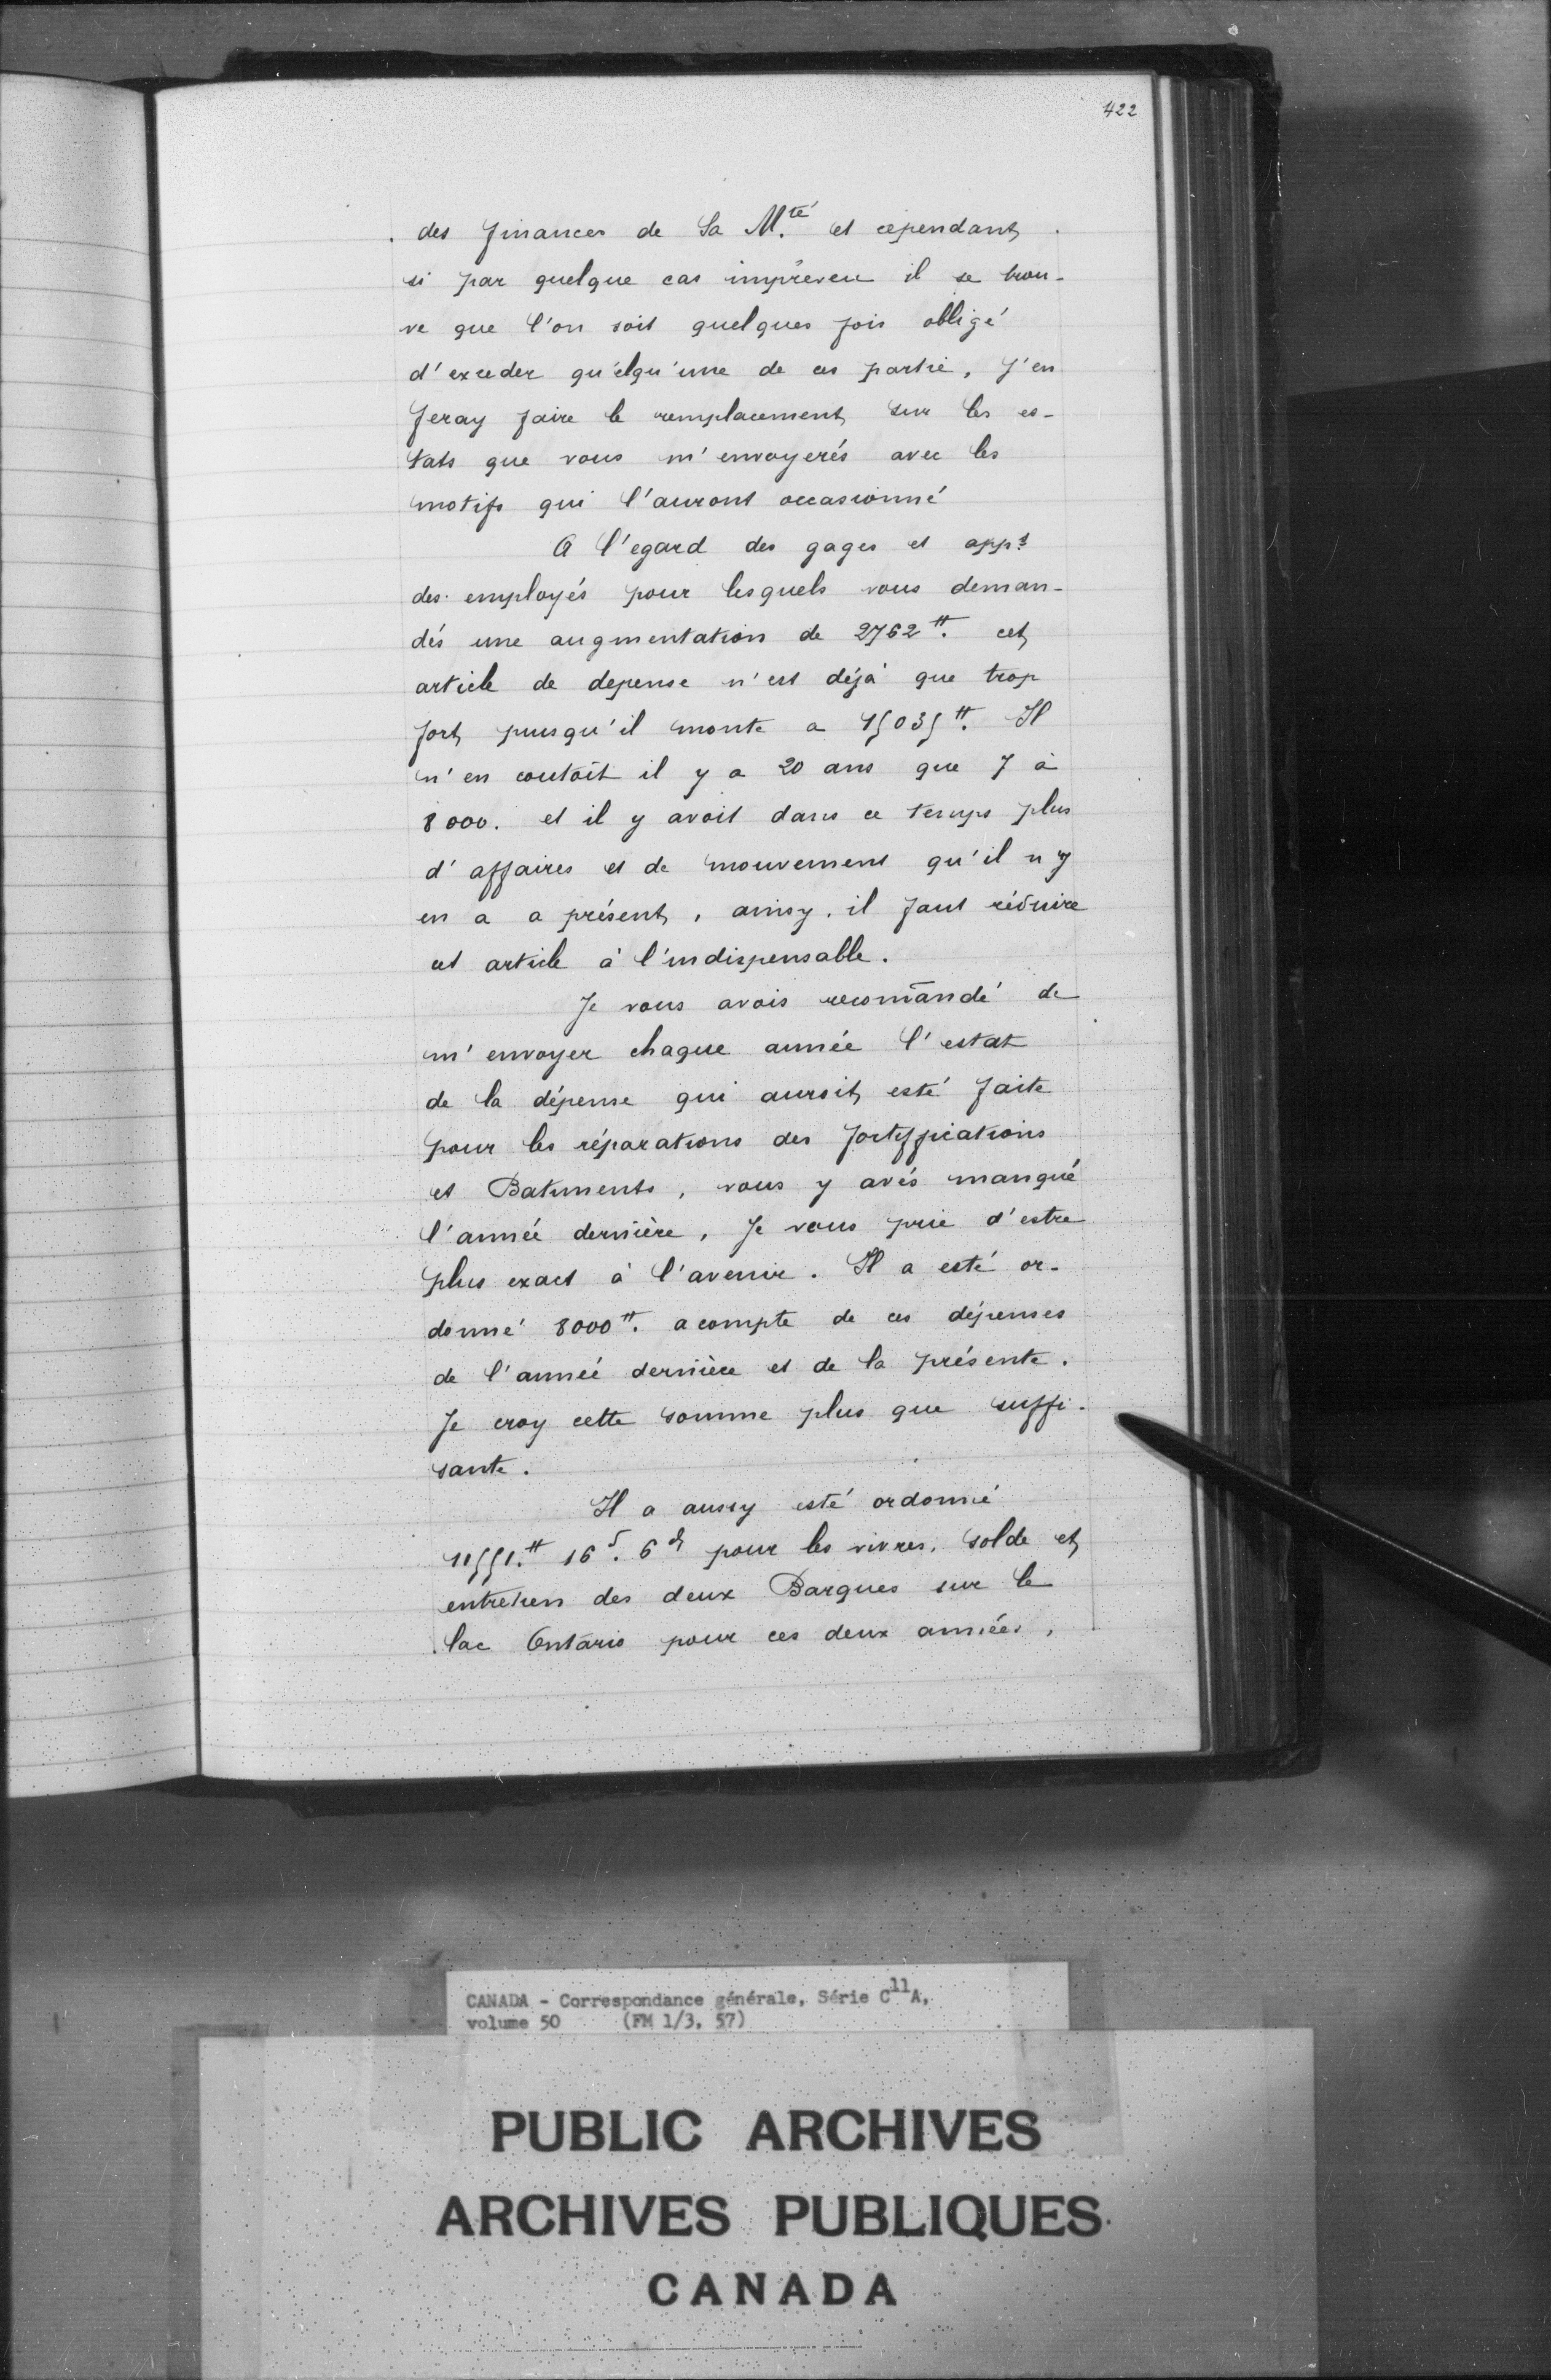 422
des finances de Sa M.té et cependant
si par quelque cas impréveu il se trou-
ve que l'on soit quelques fois obligé
d'exceder qu'elqu'une de ces partie, J'en
feray faire le remplacement sur les es-
tats que vous m'envoyerés avec les
motifs qui l'auront occasionné
A l'egard des gages et appts
des employés pour lesquels vous deman-
dés une augmentation de 2762 ₶. cet
article de depense n'est déjà que trop
fort, puisqu'il monte a 15035 ₶. Il
n'en coutoit il y a 20 ans que 7 à
8000. et il y avoit dans ce temps plus
d'affaires et de mouvement qu'il n'y
en a a présent, ainsy, il faut réduire
cet article à l'indispensable.
Je vous avois recom̃andé de
m'envoyer chaque année l'estat
de la dépense qui auroit esté faite
pour les réparations des fortiffications
et Batiments, vous y avés manqué
l'année dernière, Je vous prie d'estre
plus exact à l'avenir. Il a esté or-
donné 8000 ₶. acompte de ces dépenses
de l'année dernière et de la présente.
Je croy cette somme plus que suffi-
sante.
Il a aussy esté ordonné
11551.₶ 16 s. 6 d pour les vivres, solde et
entretien des deux Barques sur le
lac Ontario pour ces deux années,
CANADA - Correspondance générale, Série C11A,
volume 50 (FM 1/3, 57)
PUBLIC ARCHIVES
ARCHIVES PUBLIQUES
CANADA